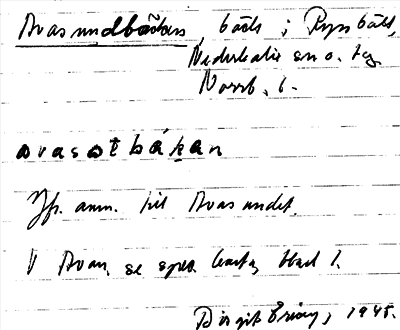 Avasundbäcken, bäck i Rysbält,
Nederkalix sn o. tg
Norrb. l.
avasatbäkan
Jfr. anm. till Avasundet.
V Avan, se spec. karta, blad 1.
Birgit 1945.